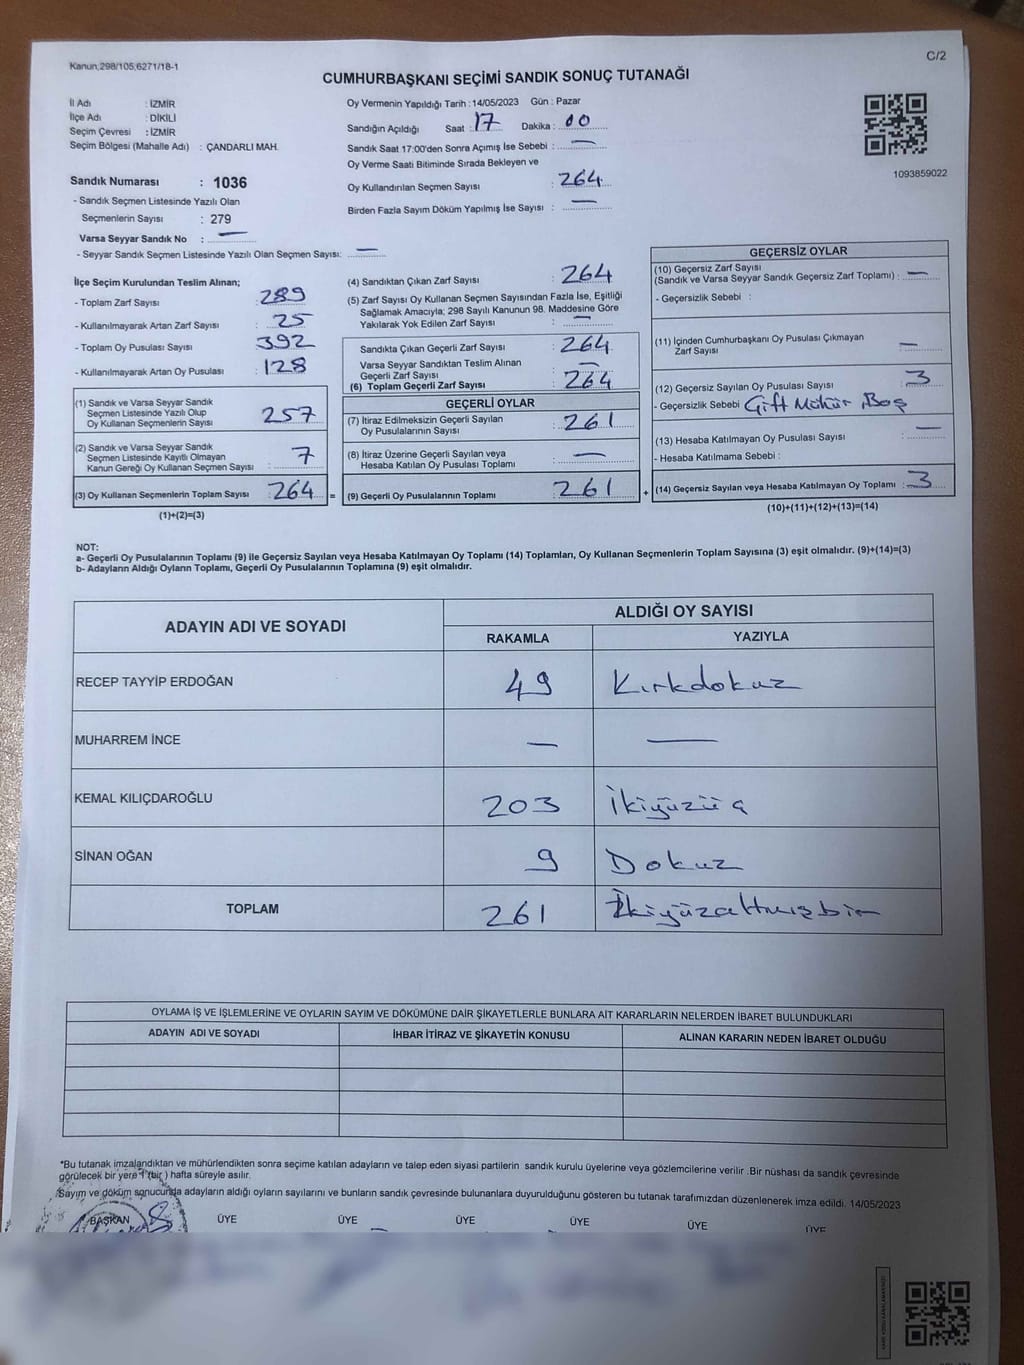 Kanun,298/105,6271/18-1
C/2
CUMHURBAŞKANI SEÇİMİ SANDIK SONUÇ TUTANAĞI
İl Adı : İZMİR
İlçe Adı : DİKİLİ
Seçim Çevresi : İZMİR
Seçim Bölgesi (Mahalle Adı) : ÇANDARLI MAH.
Sandık Numarası : 1036
- Sandık Seçmen Listesinde Yazılı Olan
Seçmenlerin Sayısı : 279
Varsa Seyyar Sandık No : —
- Seyyar Sandık Seçmen Listesinde Yazılı Olan Seçmen Sayısı: —
Oy Vermenin Yapıldığı Tarih : 14/05/2023 Gün : Pazar
Sandığın Açıldığı Saat : 17 Dakika : 00
Sandık Saat 17:00'den Sonra Açımış İse Sebebi : —
Oy Verme Saati Bitiminde Sırada Bekleyen ve
Oy Kullandırılan Seçmen Sayısı : 264
Birden Fazla Sayım Döküm Yapılmış İse Sayısı : —
1093859022
İlçe Seçim Kurulundan Teslim Alınan;
- Toplam Zarf Sayısı : 289
- Kullanılmayarak Artan Zarf Sayısı : 25
- Toplam Oy Pusulası Sayısı : 392
- Kullanılmayarak Artan Oy Pusulası : 128
(1) Sandık ve Varsa Seyyar Sandık
Seçmen Listesinde Yazılı Olup
Oy Kullanan Seçmenlerin Sayısı 257
(2) Sandık ve Varsa Seyyar Sandık
Seçmen Listesinde Kayıtlı Olmayan
Kanun Gereği Oy Kullanan Seçmen Sayısı : 7
(3) Oy Kullanan Seçmenlerin Toplam Sayısı 264 =
(1)+(2)=(3)
(4) Sandıktan Çıkan Zarf Sayısı : 264
(5) Zarf Sayısı Oy Kullanan Seçmen Sayısından Fazla İse, Eşitliği
Sağlamak Amacıyla; 298 Sayılı Kanunun 98. Maddesine Göre
Yakılarak Yok Edilen Zarf Sayısı : —
Sandıkta Çıkan Geçerli Zarf Sayısı : 264
Varsa Seyyar Sandıktan Teslim Alınan
Geçerli Zarf Sayısı : —
(6) Toplam Geçerli Zarf Sayısı : 264
GEÇERLİ OYLAR
(7) İtiraz Edilmeksizin Geçerli Sayılan
Oy Pusulalarının Sayısı : 261
(8) İtiraz Üzerine Geçerli Sayılan veya
Hesaba Katılan Oy Pusulası Toplamı : —
(9) Geçerli Oy Pusulalarının Toplamı : 261 +
GEÇERSİZ OYLAR
(10) Geçersiz Zarf Sayısı
(Sandık ve Varsa Seyyar Sandık Geçersiz Zarf Toplamı) : —
- Geçersizlik Sebebi :
(11) İçinden Cumhurbaşkanı Oy Pusulası Çıkmayan
Zarf Sayısı : —
(12) Geçersiz Sayılan Oy Pusulası Sayısı : 3
- Geçersizlik Sebebi Çift Mühür, Boş
(13) Hesaba Katılmayan Oy Pusulası Sayısı : —
- Hesaba Katılmama Sebebi :
(14) Geçersiz Sayılan veya Hesaba Katılmayan Oy Toplamı : 3
(10)+(11)+(12)+(13)=(14)
NOT:
a- Geçerli Oy Pusulalarının Toplamı (9) ile Geçersiz Sayılan veya Hesaba Katılmayan Oy Toplamı (14) Toplamları, Oy Kullanan Seçmenlerin Toplam Sayısına (3) eşit olmalıdır. (9)+(14)=(3)
b- Adayların Aldığı Oyların Toplamı, Geçerli Oy Pusulalarının Toplamına (9) eşit olmalıdır.
ADAYIN ADI VE SOYADI
ALDIĞI OY SAYISI
RAKAMLA YAZIYLA
RECEP TAYYİP ERDOĞAN 49 Kırkdokuz
MUHARREM İNCE — —
KEMAL KILIÇDAROĞLU 203 İkiyüzüç
SİNAN OĞAN 9 Dokuz
TOPLAM 261 İkiyüzaltmışbir
OYLAMA İŞ VE İŞLEMLERİNE VE OYLARIN SAYIM VE DÖKÜMÜNE DAİR ŞİKAYETLERLE BUNLARA AİT KARARLARIN NELERDEN İBARET BULUNDUKLARI
ADAYIN ADI VE SOYADI İHBAR İTİRAZ VE ŞİKAYETİN KONUSU ALINAN KARARIN NEDEN İBARET OLDUĞU
*Bu tutanak imzalandıktan ve mühürlendikten sonra seçime katılan adayların ve talep eden siyasi partilerin sandık kurulu üyelerine veya gözlemcilerine verilir .Bir nüshası da sandık çevresinde
görülecek bir yere 1 (bir ) hafta süreyle asılır.
Sayım ve döküm sonucunda adayların aldığı oyların sayılarını ve bunların sandık çevresinde bulunanlara duyurulduğunu gösteren bu tutanak tarafımızdan düzenlenerek imza edildi. 14/05/2023
BAŞKAN ÜYE ÜYE ÜYE ÜYE ÜYE ÜYE